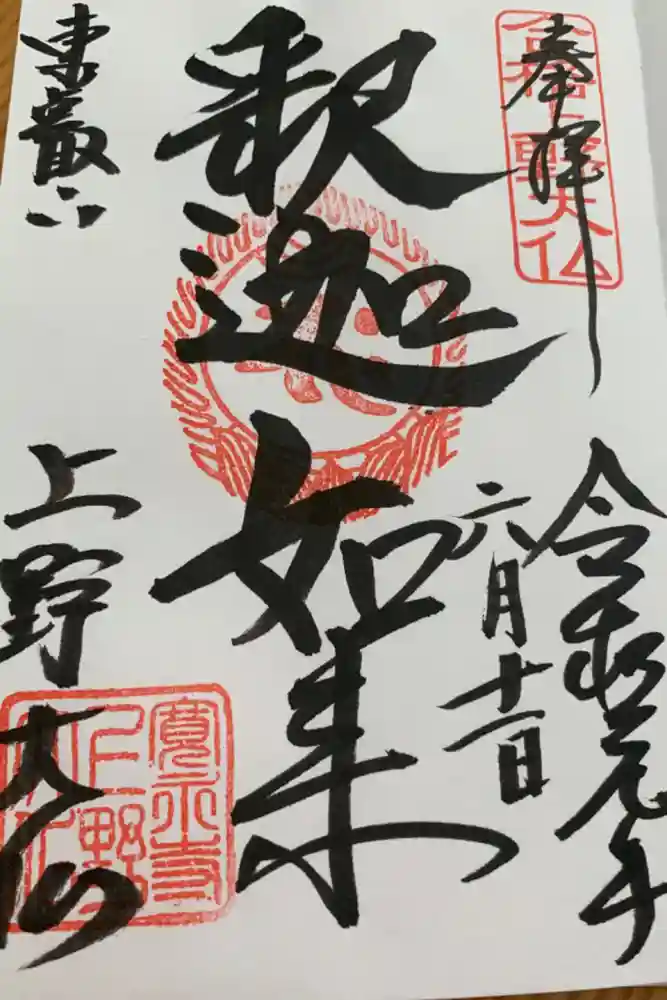 奉拝
令和元年
六月十一日
釈迦如来
東叡山
上野大仏
寛永寺
上野
大仏